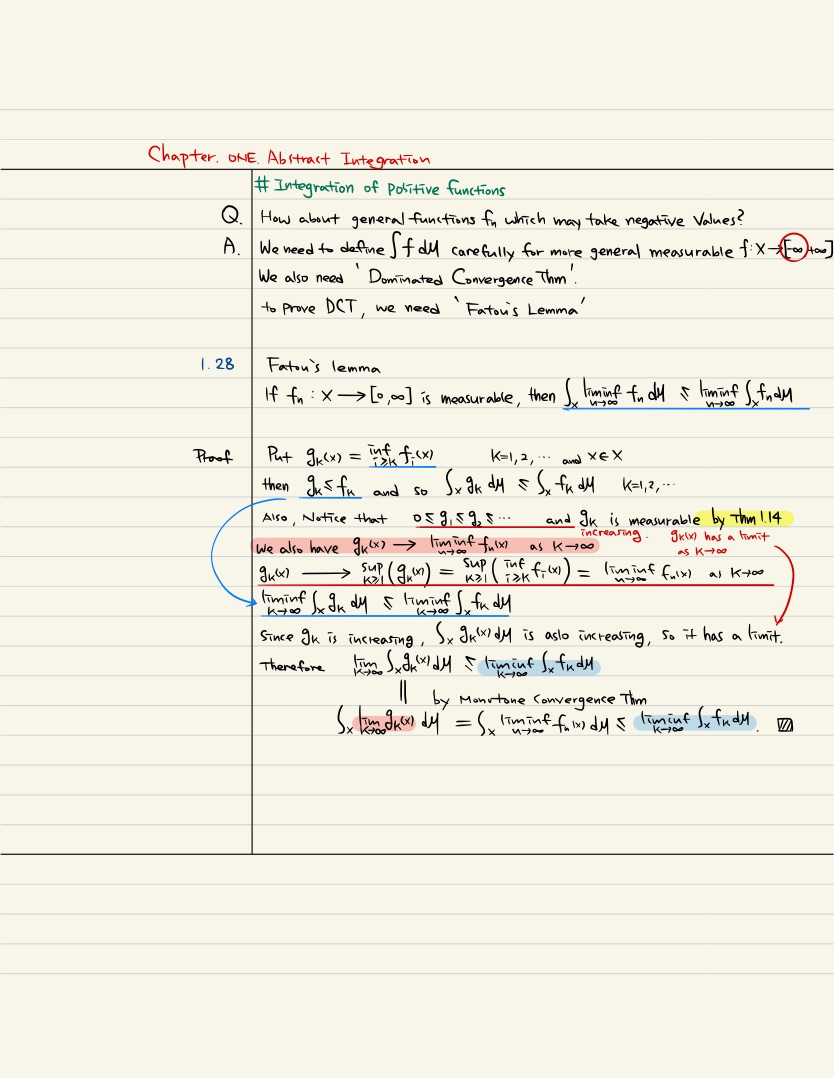 Chapter. ONE. Abstract Integration
# Integration of Positive functions
Q. How about general functions fₙ which may take negative Values?
A. We need to define ∫ f dμ carefully for more general measurable f: X → [∞, +∞]
We also need 'Dominated Convergence Thm'.
to prove DCT, we need 'Fatou's Lemma'
1.28 Fatou's lemma
If fₙ : X → [0, ∞] is measurable, then ∫_X liminf_{n→∞} fₙ dμ ≤ liminf_{n→∞} ∫_X fₙ dμ
Proof Put g_k(x) = inf_{i≥k} f_i(x) k=1, 2, ⋯ and x∈X
then g_k ≤ f_k and so ∫_X g_k dμ ≤ ∫_X f_k dμ k=1,2,⋯
Also, Notice that 0 ≤ g₁ ≤ g₂ ≤ ⋯ and g_k is measurable by Thm 1.14
increasing. g_k(x) has a limit
as k→∞
We also have g_k(x) → liminf_{n→∞} fₙ(x) as k→∞
g_k(x) → sup_{k≥1} (g_k(x)) = sup_{k≥1} (inf_{i≥k} f_i(x)) = liminf_{n→∞} fₙ(x) as k→∞
liminf_{k→∞} ∫_X g_k dμ ≤ liminf_{k→∞} ∫_X f_k dμ
Since g_k is increasing, ∫_X g_k(x) dμ is aslo increasing, so it has a limit.
Therefore lim_{k→∞} ∫_X g_k(x) dμ ≤ liminf_{k→∞} ∫_X f_k dμ
|| by Monotone Convergence Thm
∫_X lim_{k→∞} g_k(x) dμ = ∫_X liminf_{n→∞} fₙ(x) dμ ≤ liminf_{k→∞} ∫_X f_k dμ.